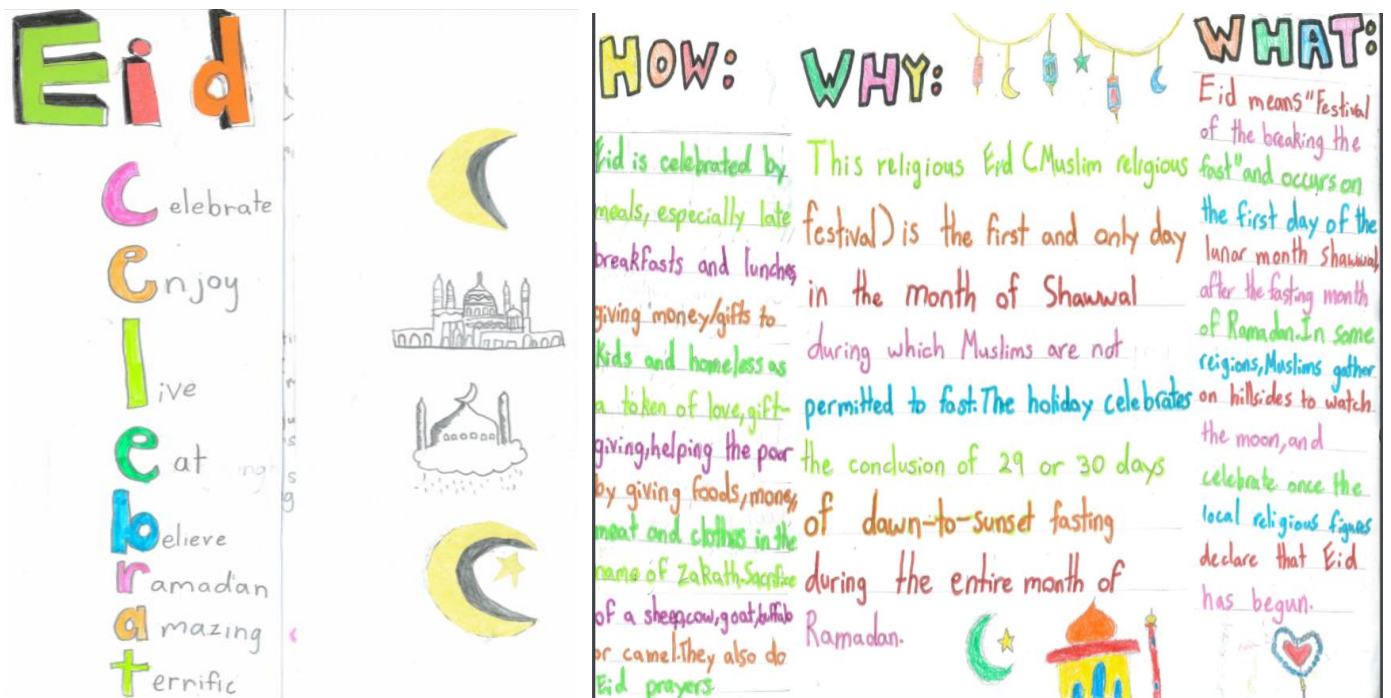 Eid
Celebrate
enjoy
live
eat
believe
ramadan
amazing
terrific
HOW:
Eid is celebrated by
meals, especially late
breakfasts and lunches,
giving money/gifts to
Kids and homeless as
a token of love, gift-
giving, helping the poor
by giving foods, money,
meat and clothes in the
name of Zakath. Sacrifice
of a sheep, cow, goat, buffalo
or camel. They also do
Eid prayers
WHY:
This religious Eid (Muslim religious
festival) is the first and only day
in the month of Shawwal
during which Muslims are not
permitted to fast. The holiday celebrates
the conclusion of 29 or 30 days
of dawn-to-sunset fasting
during the entire month of
Ramadan.
WHAT:
Eid means "Festival
of the breaking the
fast" and occurs on
the first day of the
lunar month Shawwal,
after the fasting month
of Ramadan. In some
reigions, Muslims gather
on hillsides to watch
the moon, and
celebrate once the
local religious figures
declare that Eid
has begun.